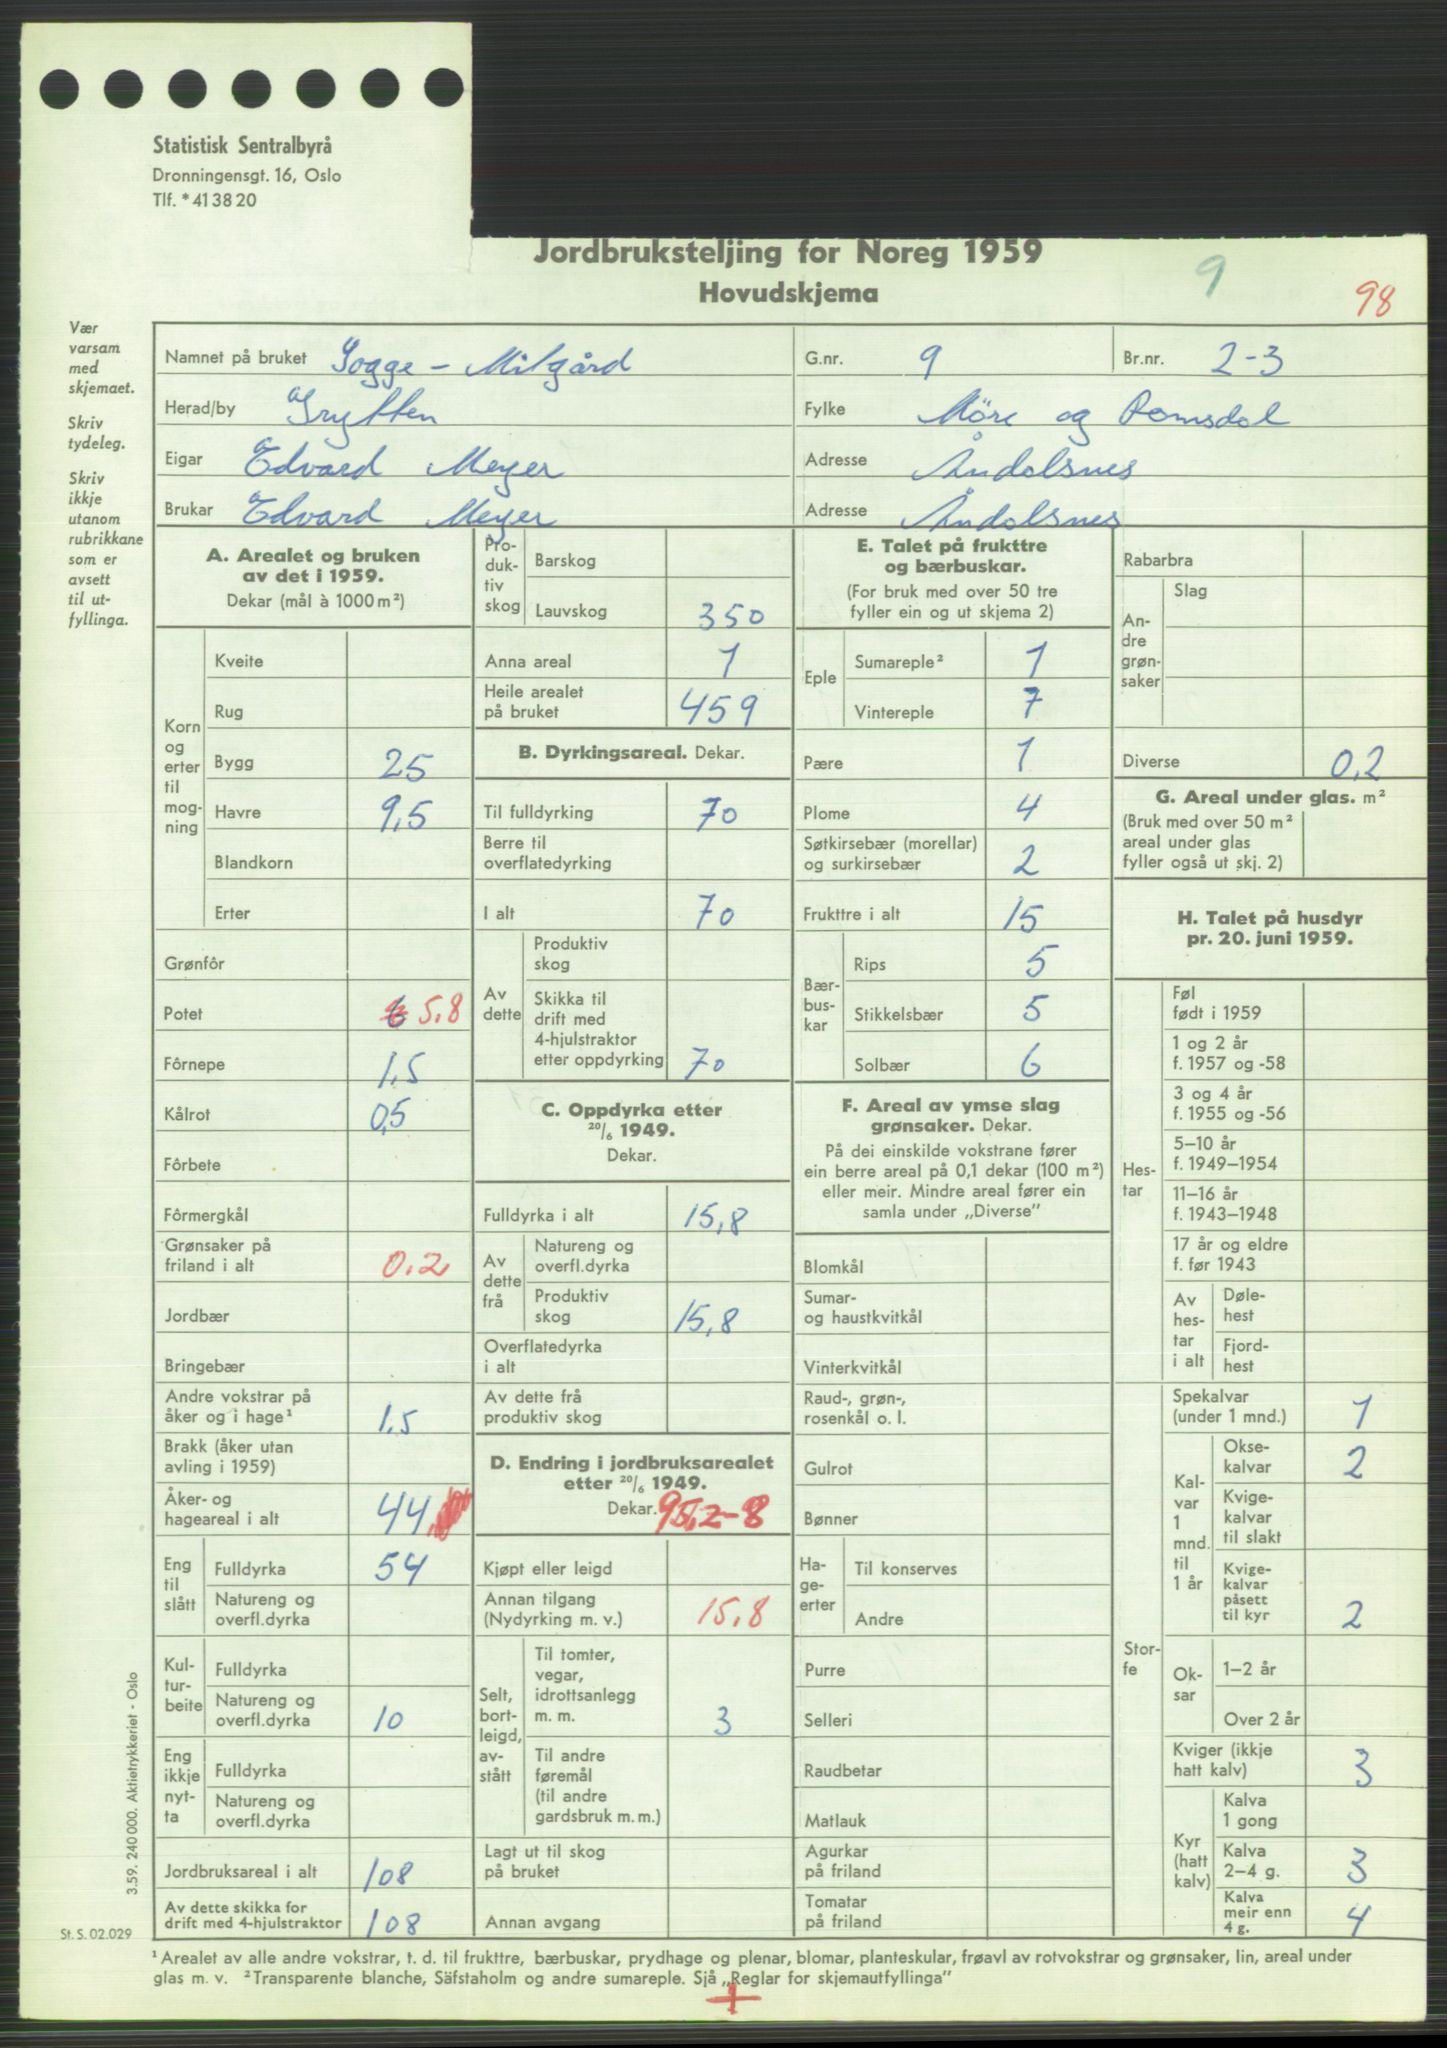 Statistisk Sentralbyrå
Dronningensgt. 16, Oslo
Tlf. * 41 38 20
Jordbruksteljing for Noreg 1959
Hovudskjema
9
98
Vær
varsam
med
skjemaet.
Skriv
tydeleg.
Skriv
ikkje
utanom
rubrikkane
som er
avsett
til ut-
fyllinga.
Namnet på bruket Sogge - Mitgård G.nr. 9 Br.nr. 2-3
Herad/by Grytten Fylke Möre og Romsdal
Eigar Edvard Meyer Adresse Åndalsnes
Brukar Edvard Meyer Adresse Åndalsnes
A. Arealet og bruken
av det i 1959.
Dekar (mål à 1000 m²)
Korn og erter til mog-ning
Kveite
Rug
Bygg 25
Havre 9,5
Blandkorn
Erter
Grønfôr
Potet 6 5,8
Fôrnepe 1,5
Kålrot 0,5
Fôrbete
Fôrmergkål
Grønsaker på
friland i alt 0.2
Jordbær
Bringebær
Andre vokstrar på
åker og i hage¹ 1,5
Brakk (åker utan
avling i 1959)
Åker- og
hageareal i alt 44
Eng til slått
Fulldyrka 54
Natureng og
overfl.dyrka
Kul-tur-beite
Fulldyrka
Natureng og
overfl.dyrka 10
Eng ikkje nyt-ta
Fulldyrka
Natureng og
overfl.dyrka
Jordbruksareal i alt 108
Av dette skikka for
drift med 4-hjulstraktor 108
Pro-duk-tiv skog
Barskog
Lauvskog 350
Anna areal 1
Heile arealet
på bruket 459
B. Dyrkingsareal. Dekar.
Til fulldyrking 70
Berre til
overflatedyrking
I alt 70
Av dette
Produktiv
skog
Skikka til
drift med
4-hjulstraktor
etter oppdyrking 70
C. Oppdyrka etter
20/6 1949.
Dekar.
Fulldyrka i alt 15,8
Av dette frå
Natureng og
overfl.dyrka
Produktiv
skog 15,8
Overflatedyrka
i alt
Av dette frå
produktiv skog
D. Endring i jordbruksarealet
etter 20/6 1949.
Dekar. 95,2-8
Kjøpt eller leigd
Annan tilgang
(Nydyrking m. v.) 15,8
Selt, bort-leigd, av-stått
Til tomter,
vegar,
idrottsanlegg
m. m. 3
Til andre
føremål
(til andre
gardsbruk m. m.)
Lagt ut til skog
på bruket
Annan avgang
E. Talet på frukttre
og bærbuskar.
(For bruk med over 50 tre
fyller ein og ut skjema 2)
Eple
Sumareple² 1
Vintereple 7
Pære 1
Plome 4
Søtkirsebær (morellar)
og surkirsebær 2
Frukttre i alt 15
Bær-bus-kar
Rips 5
Stikkelsbær 5
Solbær 6
F. Areal av ymse slag
grønsaker. Dekar.
På dei einskilde vokstrane fører
ein berre areal på 0,1 dekar (100 m²)
eller meir. Mindre areal fører ein
samla under „Diverse”
Blomkål
Sumar-
og haustkvitkål
Vinterkvitkål
Raud-, grøn-,
rosenkål o. l.
Gulrot
Bønner
Ha-ge-erter
Til konserves
Andre
Purre
Selleri
Raudbetar
Matlauk
Agurkar
på friland
Tomatar
på friland
Rabarbra
An-dre grøn-saker
Slag
Diverse 0,2
G. Areal under glas. m²
(Bruk med over 50 m²
areal under glas
fyller også ut skj. 2)
H. Talet på husdyr
pr. 20. juni 1959.
Hes-tar
Føl
født i 1959
1 og 2 år
f. 1957 og -58
3 og 4 år
f. 1955 og -56
5–10 år
f. 1949–1954
11–16 år
f. 1943–1948
17 år og eldre
f. før 1943
Av hes-tar i alt
Døle-
hest
Fjord-
hest
Stor-fe
Spekalvar
(under 1 mnd.) 1
Kal-var 1 mnd. til 1 år
Okse-
kalvar 2
Kvige-
kalvar
til slakt
Kvige-
kalvar
påsett
til kyr 2
Ok-sar
1–2 år
Over 2 år
Kviger (ikkje
hatt kalv) 3
Kyr (hatt kalv)
Kalva
1 gong
Kalva
2–4 g. 3
Kalva
meir enn
4 g. 4
3.59. 240 000. Aktietrykkeriet - Oslo
St. S. 02.029
¹ Arealet av alle andre vokstrar, t. d. til frukttre, bærbuskar, prydhage og plenar, blomar, planteskular, frøavl av rotvokstrar og grønsaker, lin, areal under
glas m. v. ² Transparente blanche, Säfstaholm og andre sumareple. Sjå „Reglar for skjemautfyllinga”